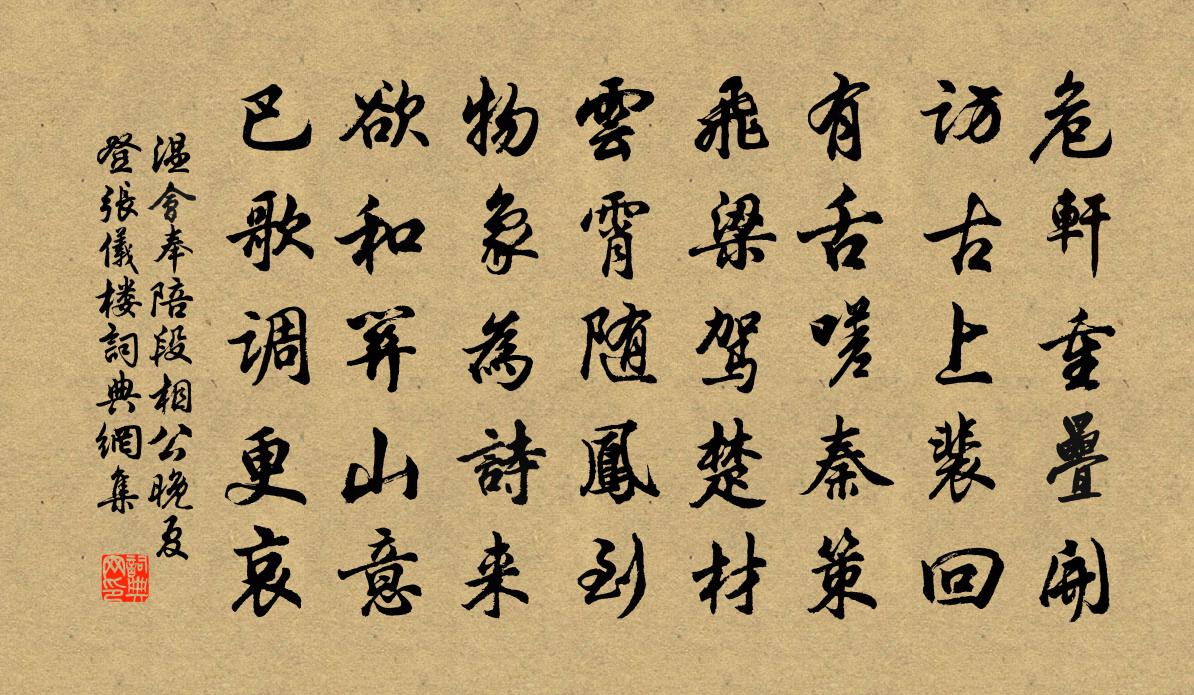 危軒重疊開
訪古上裴回
有舌嗟秦策
飛梁駕楚材
雲霄随鳳到
物象為詩来
欲和關山意
巴歌调更哀
温會奉陪段相公晚夏
登張儀楼詞典網集
詞典网印